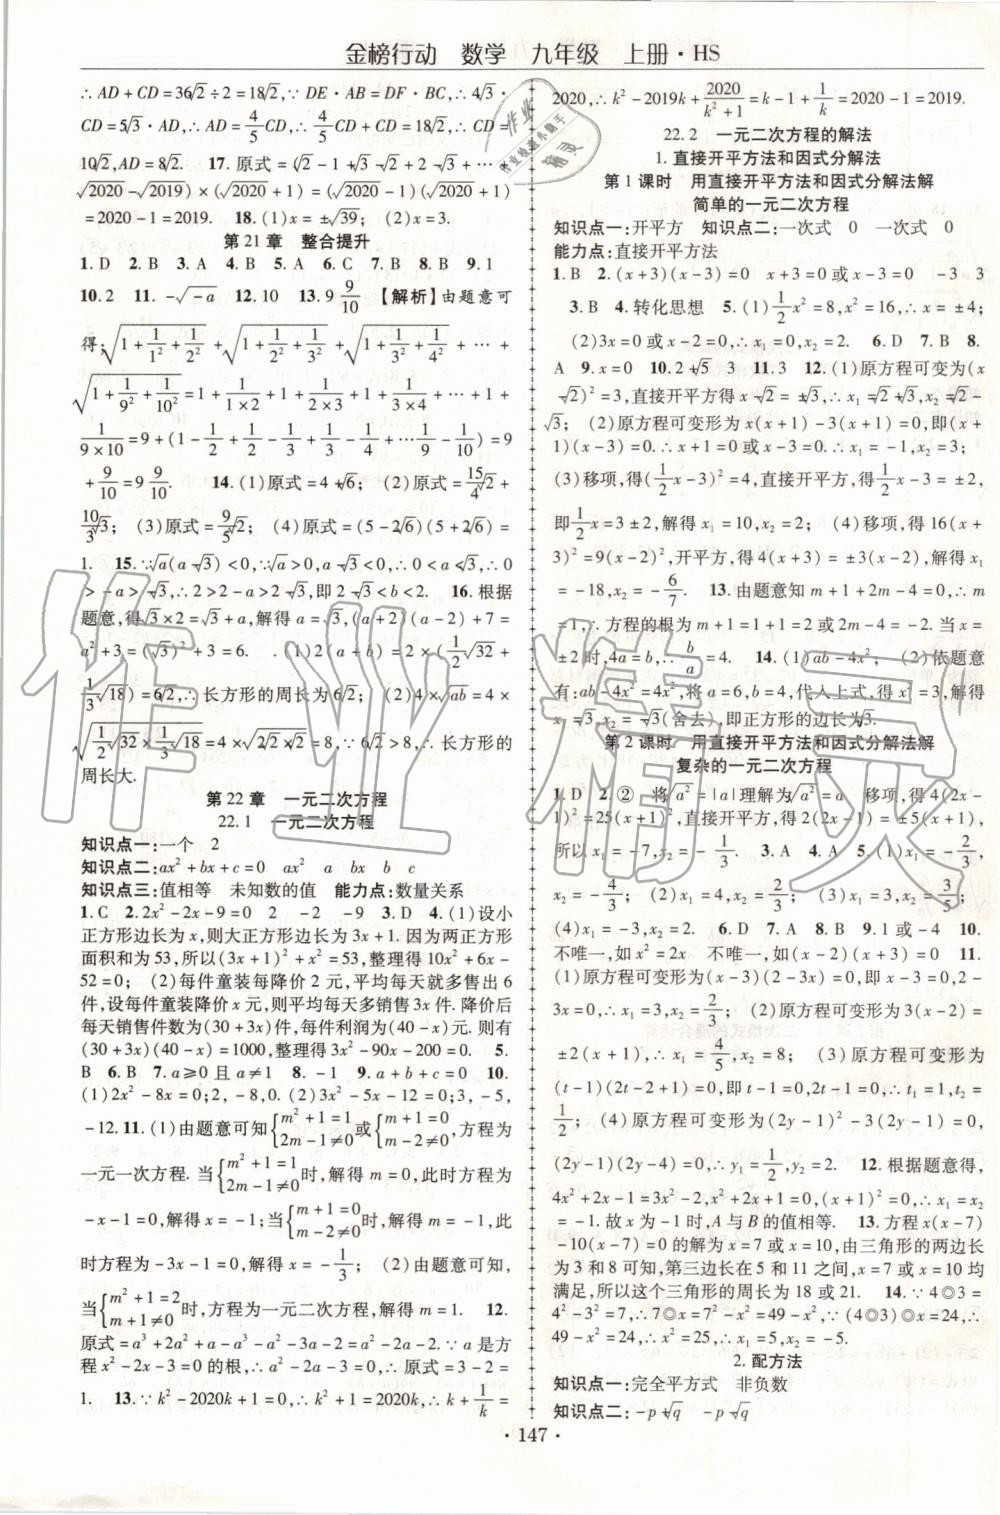 金榜行动 数学 九年级 上册·HS
∴AD+CD=36√2÷2=18√2,∵DE·AB=DF·BC,∴4√3·
CD=5√3·AD,∴AD=4/5CD,∴4/5CD+CD=18√2,∴CD=
10√2,AD=8√2. 17.原式=(√2-1+√3-√2+…+
√2020-√2019)×(√2020+1)=(√2020-1)(√2020+1)
=2020-1=2019. 18.(1)x=±√39; (2)x=3.
第21章 整合提升
1.D 2.B 3.A 4.B 5.A 6.B 7.B 8.B 9.1
10.2 11.-√-a 12.10 13.9 9/10 【解析】由题意可
得:√(1+1/1²+1/2²)+√(1+1/2²+1/3²)+√(1+1/3²+1/4²)+…+
√(1+1/9²+1/10²)=1+1/(1×2)+1+1/(2×3)+1+1/(3×4)+…+1+
1/(9×10)=9+(1-1/2+1/2-1/3+1/3-1/4+…1/9-1/10)=9
+9/10=9 9/10. 14.(1)原式=4+√6; (2)原式=15/4√2+
10/3√3; (3)原式=9/5√2; (4)原式=(5-2√6)(5+2√6)=
1. 15.∵√a(√a-√3)<0,∴√a>0,√a-√3<0,∴0<√a<√3,∴0
>-√a>-√3,∴2>2-√a>2-√3,即2-√3<b<2. 16.根据
题意,得√3×2=√3+a,解得a=√3,(a+2)(a-2)+7=
a²+3=(√3)²+3=6. .(1)2(a+b)=2×(1/2√32+
1/3√18)=6√2,∴长方形的周长为6√2; (2)4×√ab=4×
√(1/2√32×1/3√18)=4×√(2√2×√2)=8,∵6√2>8,∴长方形的
周长大.
第22章 一元二次方程
22.1 一元二次方程
知识点一:一个 2
知识点二:ax²+bx+c=0 ax² a bx b c
知识点三:值相等 未知数的值 能力点:数量关系
1.C 2.2x²-2x-9=0 2 -2 -9 3.D 4.(1)设小
正方形边长为x,则大正方形边长为3x+1.因为两正方形
面积和为53,所以(3x+1)²+x²=53,整理得10x²+6x-
52=0; (2)每件童装每降价2元,平均每天就多售出6
件,设每件童装降价x元,则平均每天多销售3x件.降价后
每天销售件数为(30+3x)件,每件利润为(40-x)元.则有
(30+3x)(40-x)=1000,整理得3x²-90x-200=0. 5.
B 6.B 7.a≥0且a≠1 8.-1 9.a+b+c=0 10.
(1)2x²-8=0;2,-8,0. (2)3x²-5x-12=0;3,-5,
-12. 11.(1)由题意可知{m²+1=1 2m-1≠0或{m+1=0 m-2≠0,方程为
一元一次方程.当{m²+1=1 2m-1≠0时,解得m=0,此时方程为
-x-1=0,解得x=-1;当{m+1=0 m-2≠0时,解得m=-1,此
时方程为-3x-1=0,解得x=-1/3; (2)由题意可知,
当{m²+1=2 m+1≠0时,方程为一元二次方程,解得m=1. 12.
原式=a³+2a²+a-a³-a²-3a-2=a²-2a-2.∵a是方
程x²-2x-3=0的根,∴a²-2a-3=0,∴原式=3-2=
1. 13.∵k²-2020k+1=0,∴k²+1=2020k,∴k+1/k=
2020,∴k²-2019k+2020/(k²+1)=k-1+1/k=2020-1=2019.
22.2 一元二次方程的解法
1.直接开平方法和因式分解法
第1课时 用直接开平方法和因式分解法解
简单的一元二次方程
知识点一:开平方 知识点二:一次式 0 一次式 0
能力点:直接开平方法
1.B 2.(x+3)(x-3)=0 x+3=0或x-3=0 -3 3
3.B 4.转化思想 5.(1)1/2x²=8,x²=16,∴x=±4;
(2)3x=0或x-2=0,∴x₁=0,x₂=2. 6.D 7.B 8.
A 9.x=0 10.2+√5 3 11.3 12.(1)原方程可变为(x-
√2)²=3,直接开平方得x-√2=±√3,∴x₁=√2+√3,x₂=√2-
√3; (2)原方程可变形为x(x+1)-3(x+1)=0,即(x+
1)(x-3)=0.∴x+1=0或x-3=0.∴x₁=-1,x₂=3;
(3)移项,得(1/2x-3)²=4,直接开平方,得1/2x-3=±2,
即1/2x=3±2,解得x₁=10,x₂=2; (4)移项,得16(x+
3)²=9(x-2)²,开平方,得4(x+3)=±3(x-2),解得x₁
=-18,x₂=-6/7. 13.由题意知m+1+2m-4=0,∴m
=1,∴方程的根为m+1=1+1=2或2m-4=-2.当x=
±2时,4a=b,∴b/a=4. 14.(1)ab-4x²; (2)依题意
有:ab-4x²=4x²,将a=6,b=4,代入上式,得x²=3,解得
x₁=√3,x₂=-√3(舍去),即正方形的边长为√3.
第2课时 用直接开平方法和因式分解法解
复杂的一元二次方程
1.D 2.② 将√a²=|a|理解为√a²=a 移项,得4(2x-
1)²=25(x+1)²,直接开平方,得2(2x-1)=±5(x+1),
所以x₁=-7,x₂=-1/3. 3.A 4.A 5.(1)x₁=-2/3,
x₂=-4/3; (2)x₁=4,x₂=2/3; (3)x₁=2,x₂=3/5;
(4)x₁=-3,x₂=2. 6.D 7.A 8.B 9.1或-4 10.
不唯一,如x²=0 不唯一,如(x-1)(x-2)=0 11.
(1)原方程可变形为(x-3)(2-3x)=0,即x-3=0,2-
3x=0,∴x₁=3,x₂=2/3; (2)原方程可变形为3(x-2)=
±2(x+1),∴x₁=4/5,x₂=8; (3)原方程可变形为
(t-1)(2t-1)=0,即t-1=0,2t-1=0,∴t₁=1,t₂=
1/2; (4)原方程可变形为(2y-1)²-3(2y-1)=0,
(2y-1)(2y-4)=0,∴y₁=1/2,y₂=2. 12.根据题意得,
4x²+2x-1=3x²-2,x²+2x+1=0,(x+1)²=0,∴x₁=x₂
=-1.故x为-1时,A与B的值相等. 13.方程x(x-7)
-10(x-7)=0的解为x=7或x=10,由三角形的两边长
为3和8可知,第三边长在5和11之间,x=7或x=10均
满足,所以这个三角形的周长为18或21. 14.∵4◎3=
4²-3²=7,∴7◎x=7²-x²=49-x²,∵(4◎3)◎x=24,∴
49-x²=24,∴x²=25,∴x₁=5,x₂=-5.
2.配方法
知识点一:完全平方式 非负数
知识点二:-p+√q -p-√q
·147·
作业精灵